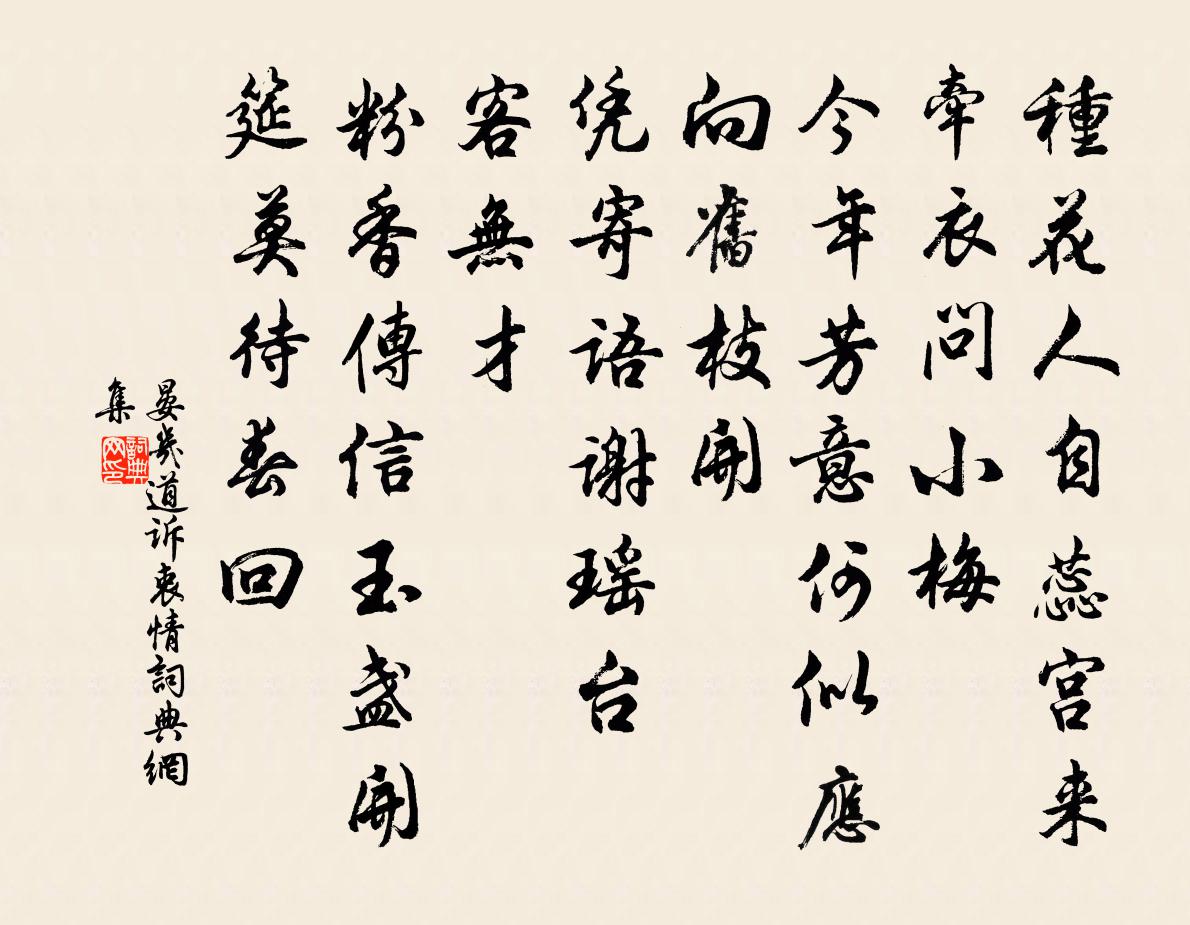 種花人自蕊宮来
牽衣問小梅
今年芳意何似應
向舊枝開
凭寄語謝瑶台
客無才
粉香傳信玉盞開
筵莫待春回
晏幾道訴衷情詞典網
集
詞典网印